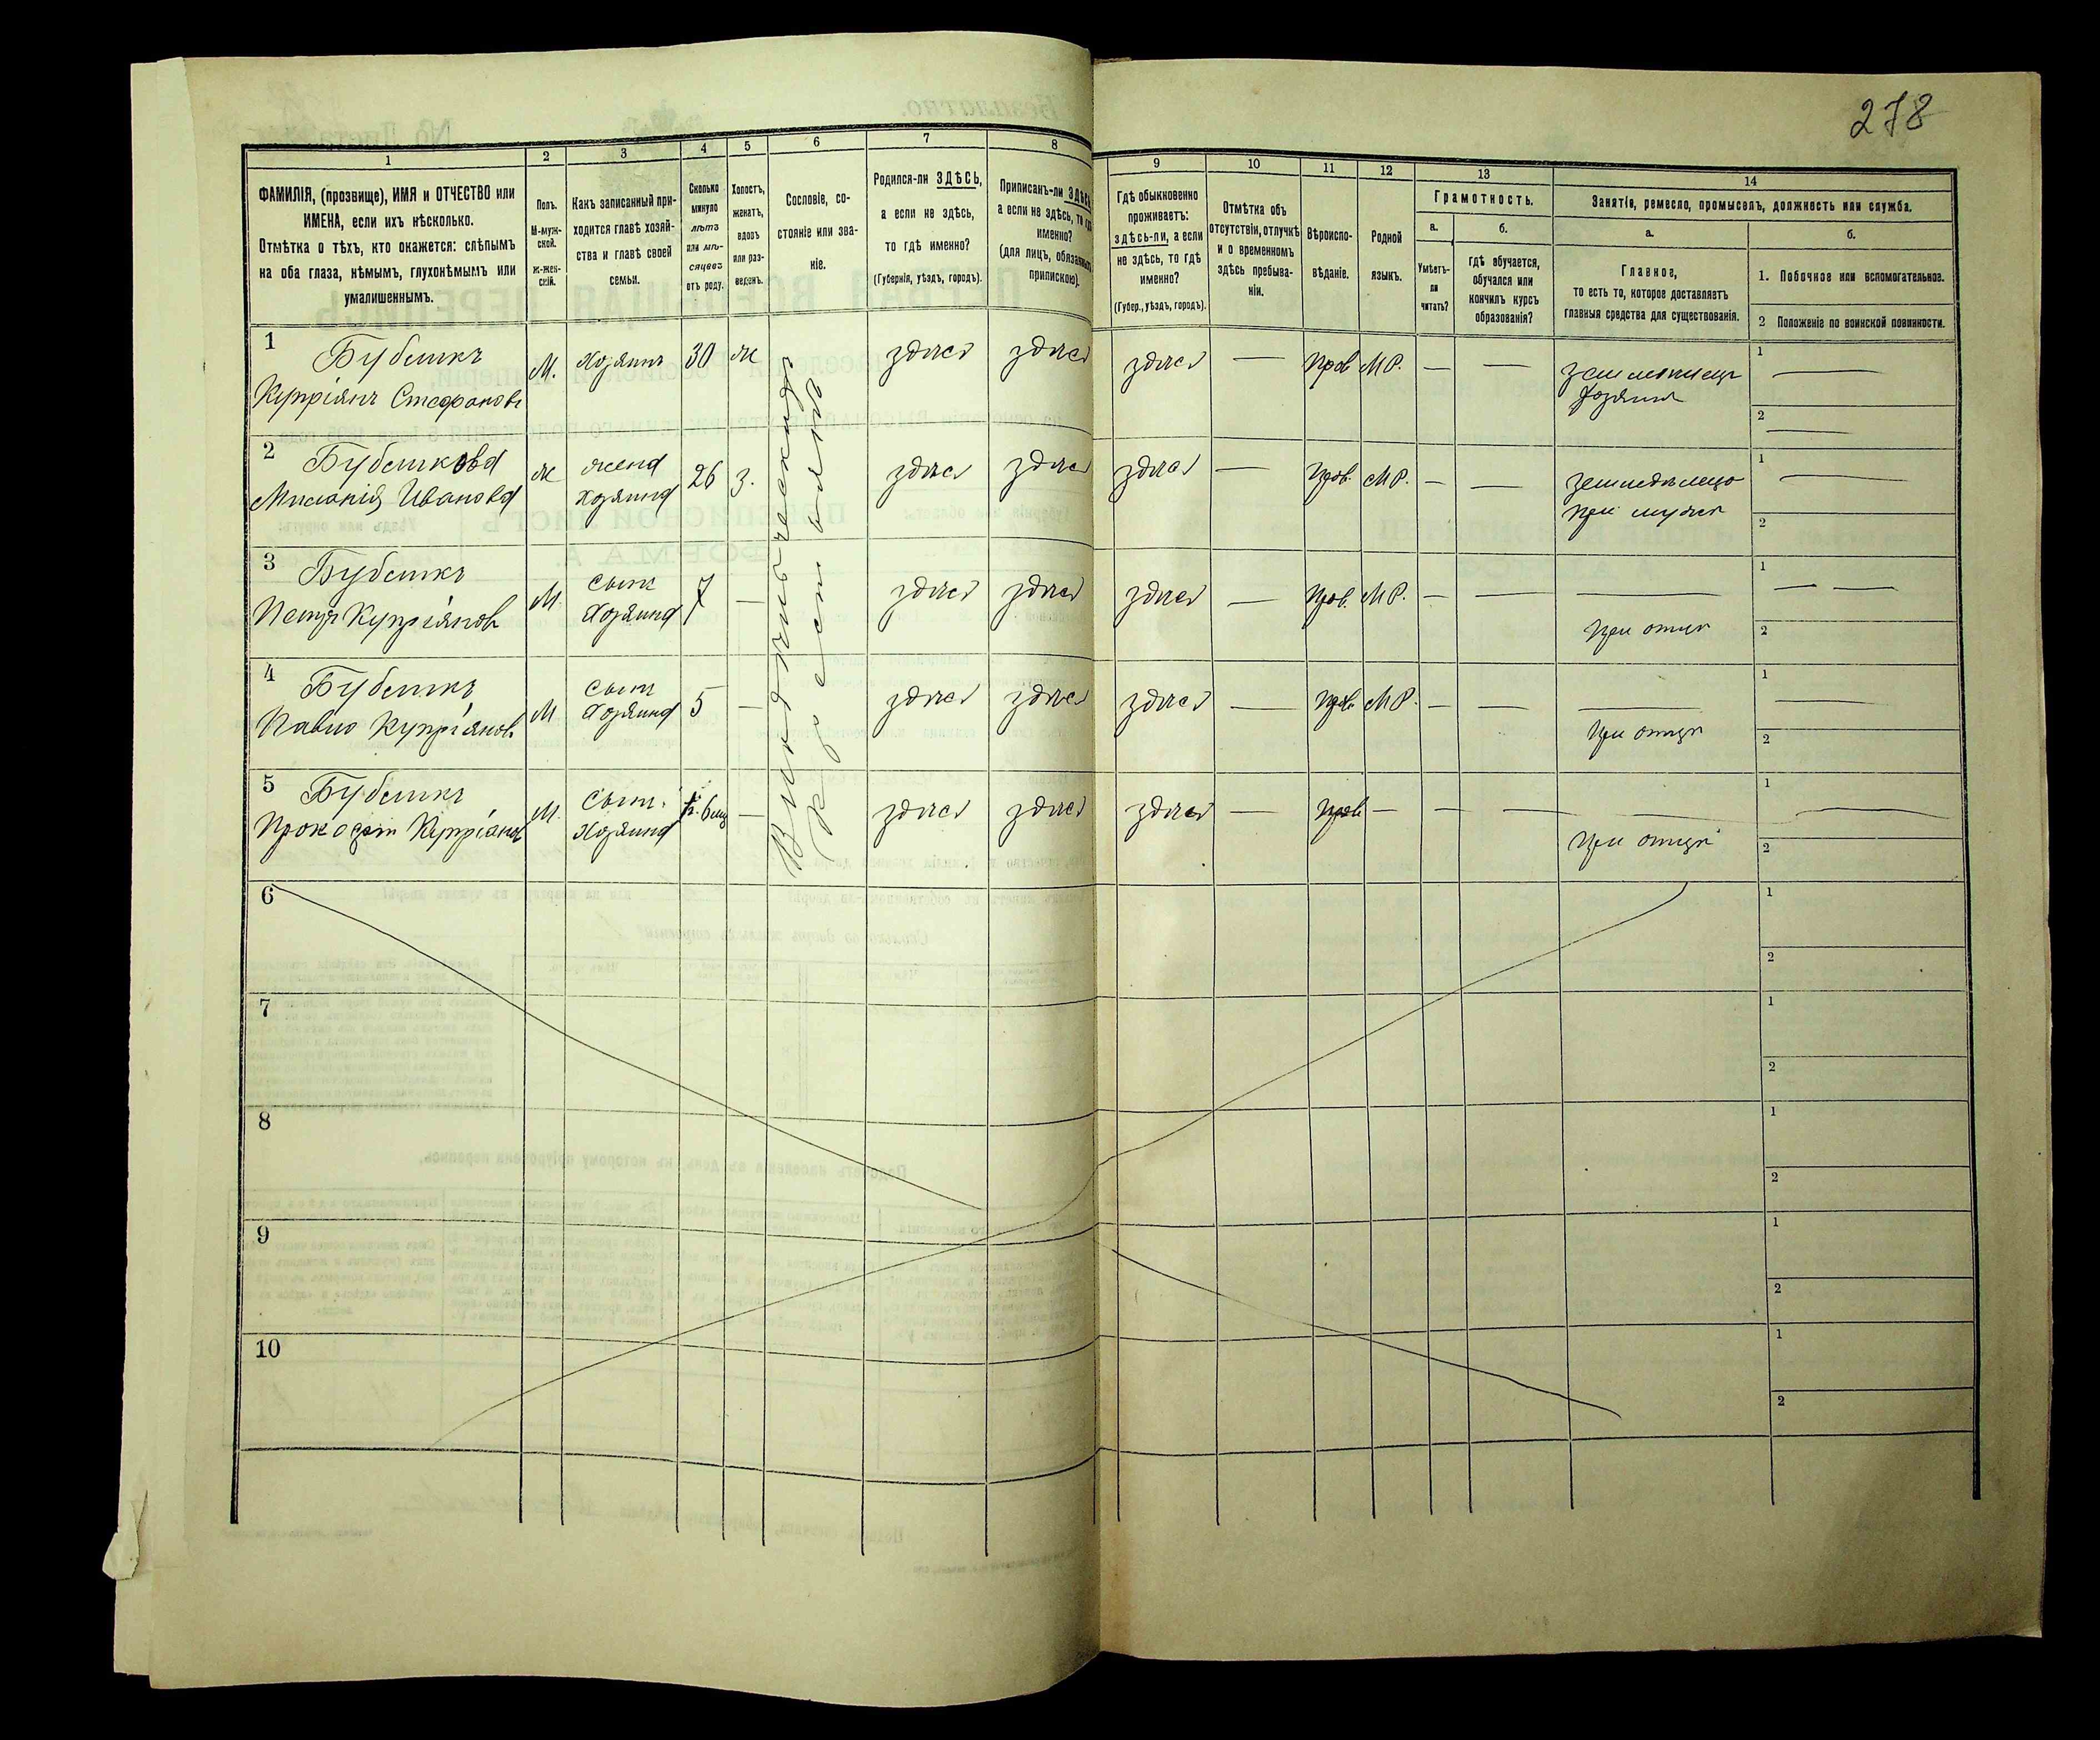 278
1 2 3 4 5 6 7 8 9 10 11 12 13 14
ФАМИЛІЯ, (прозвище), ИМЯ и ОТЧЕСТВО или
ИМЕНА, если ихъ нѣсколько.
Отмѣтка о тѣхъ, кто окажется: слѣпымъ
на оба глаза, нѣмымъ, глухонѣмымъ или
умалишеннымъ.
Полъ.
М-муж-
ской.
Ж-жен-
скій.
Какъ записанный при-
ходится главѣ хозяй-
ства и главѣ своей
семьи.
Сколько
минуло
лѣтъ
или мѣ-
сяцевъ
отъ роду.
Холостъ,
женатъ,
вдовъ
или раз-
веденъ.
Сословіе, со-
стояніе или зва-
ніе.
Родился-ли ЗДѢСЬ,
а если не здѣсь,
то гдѣ именно?
(Губернія, уѣздъ, городъ).
Приписанъ-ли ЗДѢСЬ
а если не здѣсь, то гдѣ
именно?
(для лицъ, обязанныхъ
припискою).
Гдѣ обыкновенно
проживаетъ:
здѣсь-ли, а если
не здѣсь, то гдѣ
именно?
(Губер., уѣздъ, городъ).
Отмѣтка объ
отсутствіи, отлучкѣ
и о временномъ
здѣсь пребыва-
ніи.
Вѣроиспо-
вѣданіе.
Родной
языкъ.
Грамотность.
а.
Умѣетъ-
ли
читать?
б.
гдѣ обучается,
обучался или
кончилъ курсъ
образованія?
Занятіе, ремесло, промыселъ, должность или служба.
а.
Главное,
то есть то, которое доставляетъ
главныя средства для существованія.
б.
1. Побочное или вспомогательное.
2 Положеніе по воинской повинности.
1 Бубликъ М. Хозяинъ 30 ж здѣсь здѣсь здѣсь — Прав М.Р. — — 1 —
Купріянъ Стефановъ Хозяинъ 2 —
2 ж жена 26 з. здѣсь здѣсь здѣсь — Прав. М.Р. — — 1 —
Ивановa хозяина при мужѣ 2
3 Бубликъ М. сынъ 7 — здѣсь здѣсь здѣсь — Прав. М.Р. — — — 1 — —
Петръ Купріяновъ Хозяина при отцѣ 2
4 Бубликъ М сынъ 5 — здѣсь здѣсь здѣсь — Прав. М.Р. — — — 1 —
Павло Купріяновъ Хозяина при отцѣ 2
5 Бубликъ М. Сынъ — здѣсь здѣсь здѣсь — Прав — — — — 1 —
Купріяновъ Хозяина при отцѣ 2
6 1
2
7 1
2
8 1
2
9 1
2
10 1
2